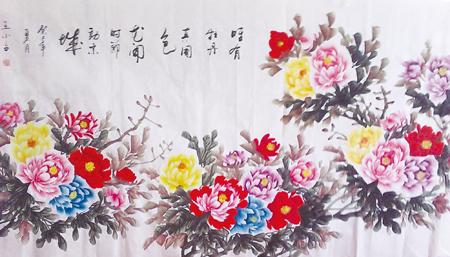 唯有
牡丹
真国
色
花開
时节
动京
城
癸巳年
夏月